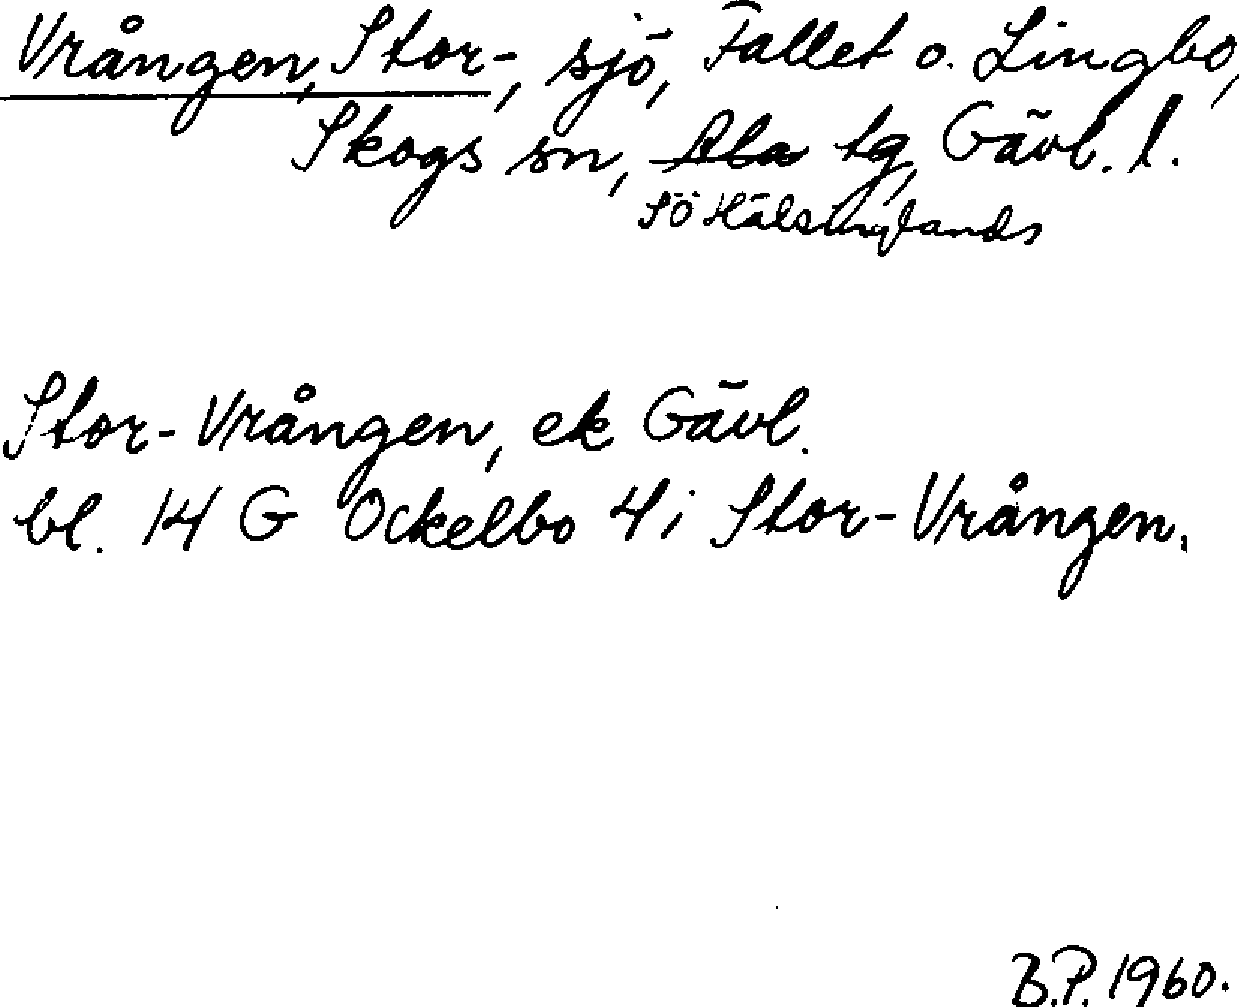 Vrången, Stor-, sjö, Fallet o. Lingbo,
Skogs sn, Ala tg, Gävl. l.
Sö Hälsinglands
Stor-Vrången, ek Gävl.
bl. 14 G Ockelbo 4i Stor-Vrången.
B.P. 1960.